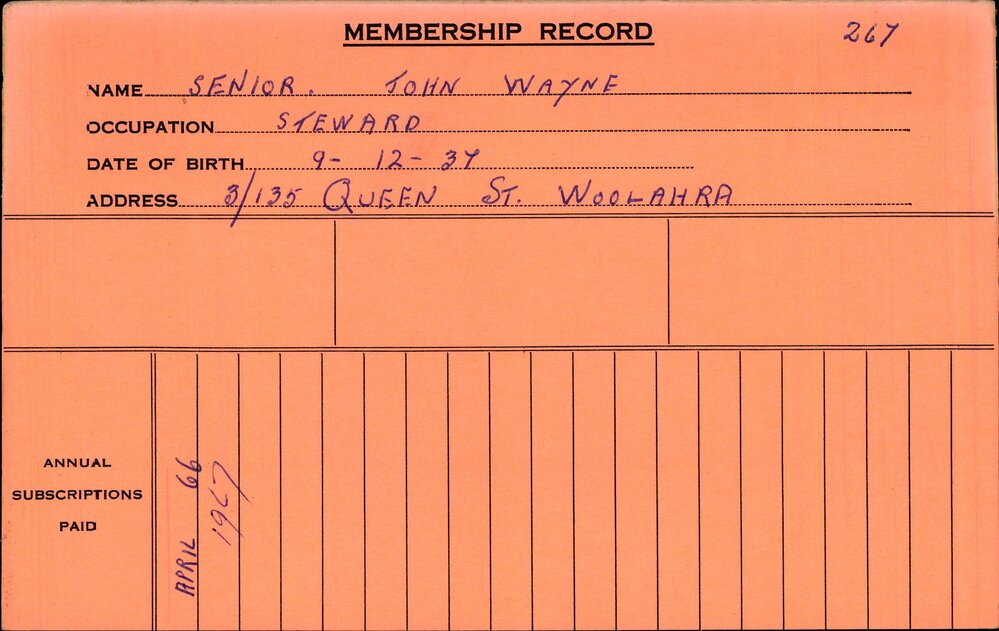 MEMBERSHIP RECORD 267
NAME SENIOR. JOHN WAYNE
OCCUPATION STEWARD
DATE OF BIRTH 9- 12- 37
ADDRESS 3/135 QUEEN ST. WOOLAHRA
ANNUAL
SUBSCRIPTIONS
PAID
APRIL 66
1967